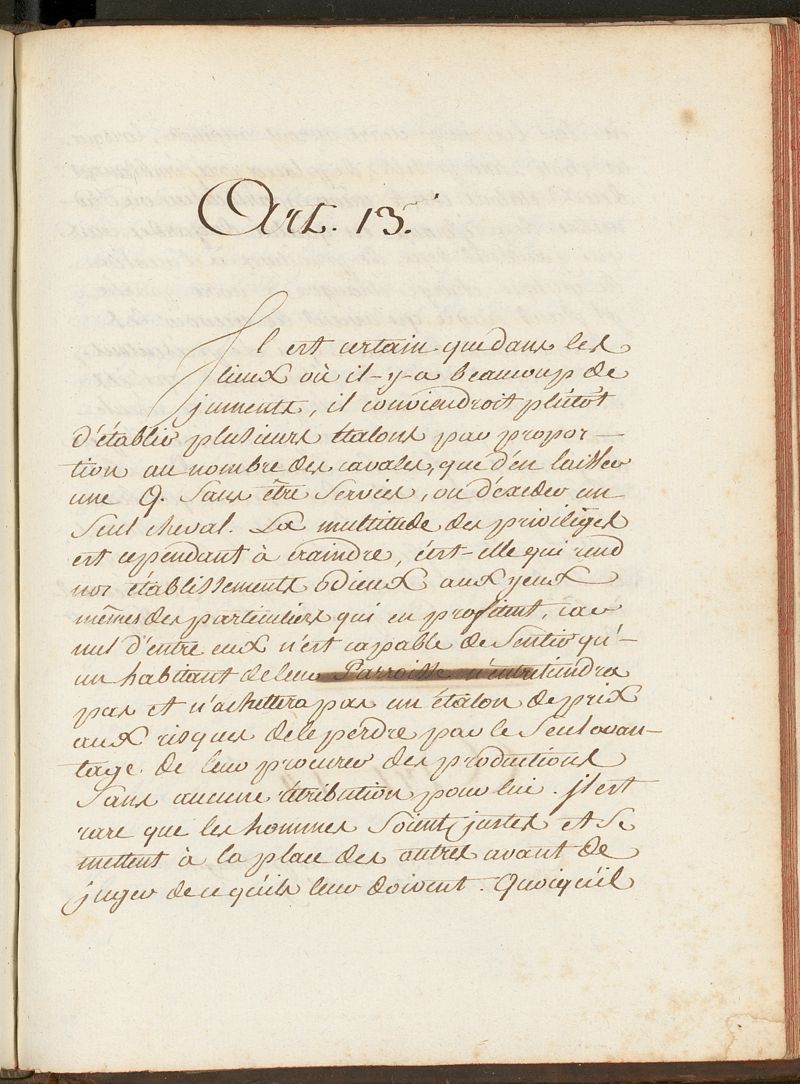 Art. 13.
Il est certain que dans les
lieux où il-y-a beaucoup de
juments, il conviendroit plûtôt
d'établir plusieurs étalons par propor-
tion au nombre des cavales, que d'en laisser
une Q. sans être servies, ou d'exeder un
seul cheval. La multitude des priviliges
est cependant à craindre, c'est-elle qui rend
nos établissements odieux aux yeux
mêmes des particuliers qui en profitent, car
nul d'entre eux n'est capable de sentir qu'-
un habitant de leur Parroisse n'entretiendra
pas et n'achettera pas un étalon de prix
aux risques de le perdre par le seul avan-
tage de leur procurer des productions
sans aucune rétribution pour lui. il est
rare que les hommes soient justes et se
mettent à la place des autres avant de
juger de ce qu'ils leur doivent. Quoiqu'il